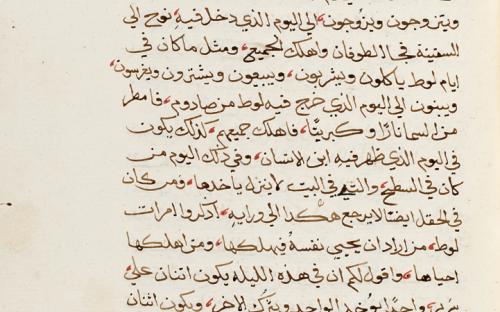 ويتزوجون ويزوجون، الي اليوم الذي دخل فيه نوح الي
السفينة فجا الطوفان واهلك الجميع، ومثل ما كان في
ايام لوط ياكلون ويشربون، ويبيعون ويشترون ويغرسون،
ويبنون الي اليوم الذي خرج فيه لوط من صادوم، فامطر
من السما نارًا وكبريتًا، فاهلك جميعهم، كذلك يكون
في اليوم الذي ظهر فيه ابن الانسان، وفي ذلك اليوم من
كان في السطح، والتيه في البيت لا ينزله ياخدها، ومن كان
في الحقل ايضًا لا يرجع هكدا الي ورايه، اذكروا امرات
لوط، من اراد ان يحيي نفسهُ فيهلكها، ومن اهلكها
احياها، واقول لكم ان في هذه الليله يكون اتنان علي
سرير، واحدًا يوخد الواحد ويترك الاخر، ويكون اثنان